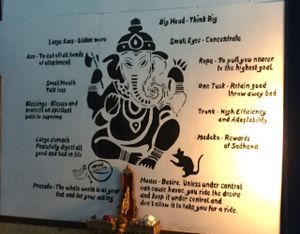 Big Head - Think Big
Large Ears - Listen more
Small Eyes - Concentrate
Axe - To cut off all bonds
of attachment
Rope - To pull you nearer
to the highest goal
Small Mouth
Talk less
One Tusk - Retain good
throw away bad
Blessings - Blesses and
protects on spiritual
path to supreme
Trunk - High Efficiency
and Adaptability
Modaka - Rewards
of Sadhana
Large stomach
Peacefully digest all
good and bad in life
Prasada - The whole world is at your
feet and for your asking
Mouse - Desire. Unless under control
can cause havoc. you ride the desire
and keep it under control and
don't allow it to take you for a ride.